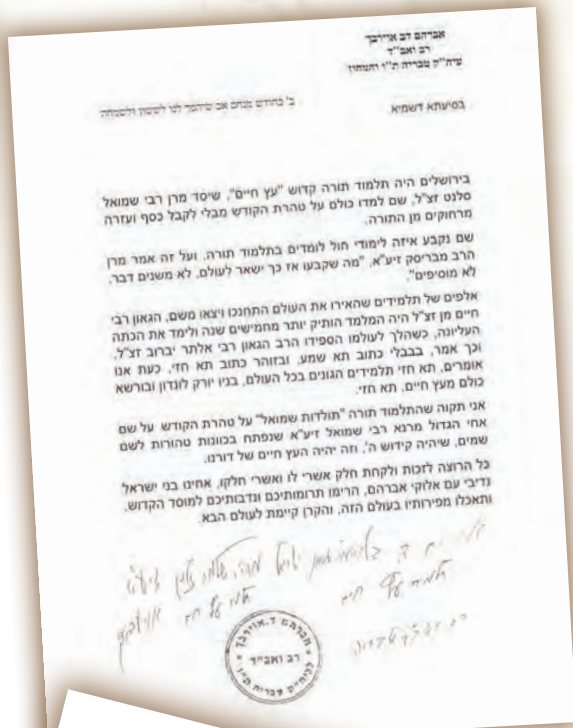 אברהם דב אוירבך
רב ואב"ד
עיה"ק טבריה ת"ו והמחוז
ב' בחודש מנחם אב שיהפך לנו לששון ולשמחה
בסיעתא דשמיא
בירושלים היה תלמוד תורה קדוש "עץ חיים", שיסד מרן רבי שמואל
סלנט זצ"ל, שם למדו כולם על טהרת הקודש מבלי לקבל כסף ועזרה
מרחוקים מן התורה.
שם נקבע איזה לימודי חול לומדים בתלמוד תורה, ועל זה אמר מרן
הרב מבריסק זיע"א, "מה שקבעו אז כך ישאר לעולם, לא משנים דבר,
לא מוסיפים".
אלפים של תלמידים שהאירו את העולם התחנכו ויצאו משם, הגאון רבי
חיים מן זצ"ל היה המלמד הותיק יותר מחמישים שנה ולימד את הכתה
העליונה, כשהלך לעולמו הספידו הרב הגאון רבי אלתר יברוב זצ"ל,
וכך אמר, בבבלי כתוב תא שמע, ובזוהר כתוב תא חזי, כעת אנו
אומרים, תא חזי תלמידים הגונים בכל העולם, בניו יורק לונדון ובורשא
כולם מעץ חיים, תא חזי.
אני תקוה שהתלמוד תורה "תולדות שמואל" על טהרת הקודש על שם
אחי הגדול מרנא רבי שמואל זיע"א שנפתח בכוונות טהורות לשם
שמים, שיהיה קידוש ה', וזה יהיה העץ חיים של דורנו.
כל הרוצה לזכות ולקחת חלק אשרי לו ואשרי חלקו, אחינו בני ישראל
נדיבי עם אלוקי אברהם, הרימו תרומותיכם ונדבותיכם למוסד הקדוש,
ותאכלו מפירותיו בעולם הזה, והקרן קיימת לעולם הבא.
אברהם ד. אוירבך
רב ואב"ד
לעיה"ק טבריה ת"ו